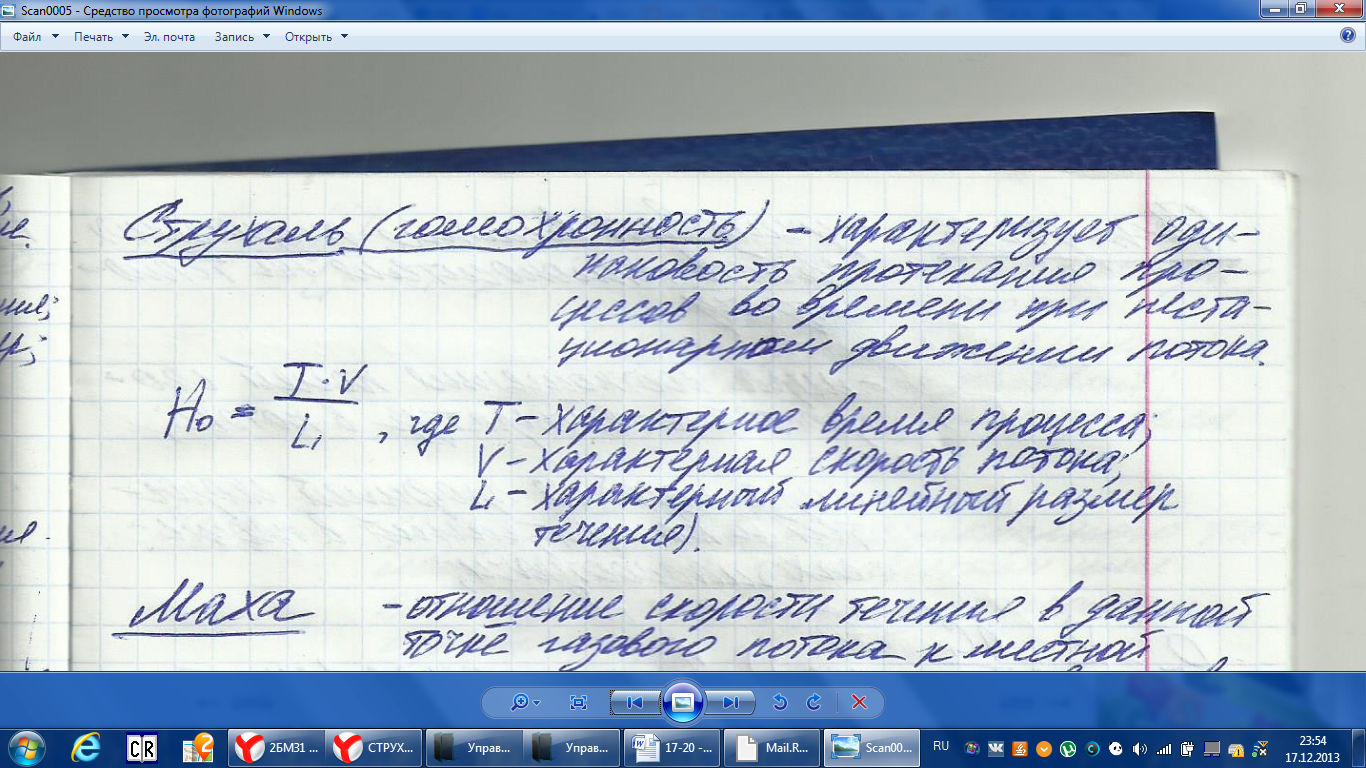 Scan0005 - Средство просмотра фотографий Windows
Файл Печать Эл. почта Запись Открыть
Струхаль (гомохронность) - характеризует оди-
наковость протекания про-
цессов во времени при неста-
ционарном движении потока.
Ho = T·V / L, где T - характерное время процесса;
V - характерная скорость потока;
L - характерный линейный размер
течения).
Маха - отношение скорости течения в данной
точке газового потока к местной
CR 2БМ31 ... СТРУХ... Управ... Управ... 17-20 -... Mail.R... Scan00... RU 23:54
17.12.2013